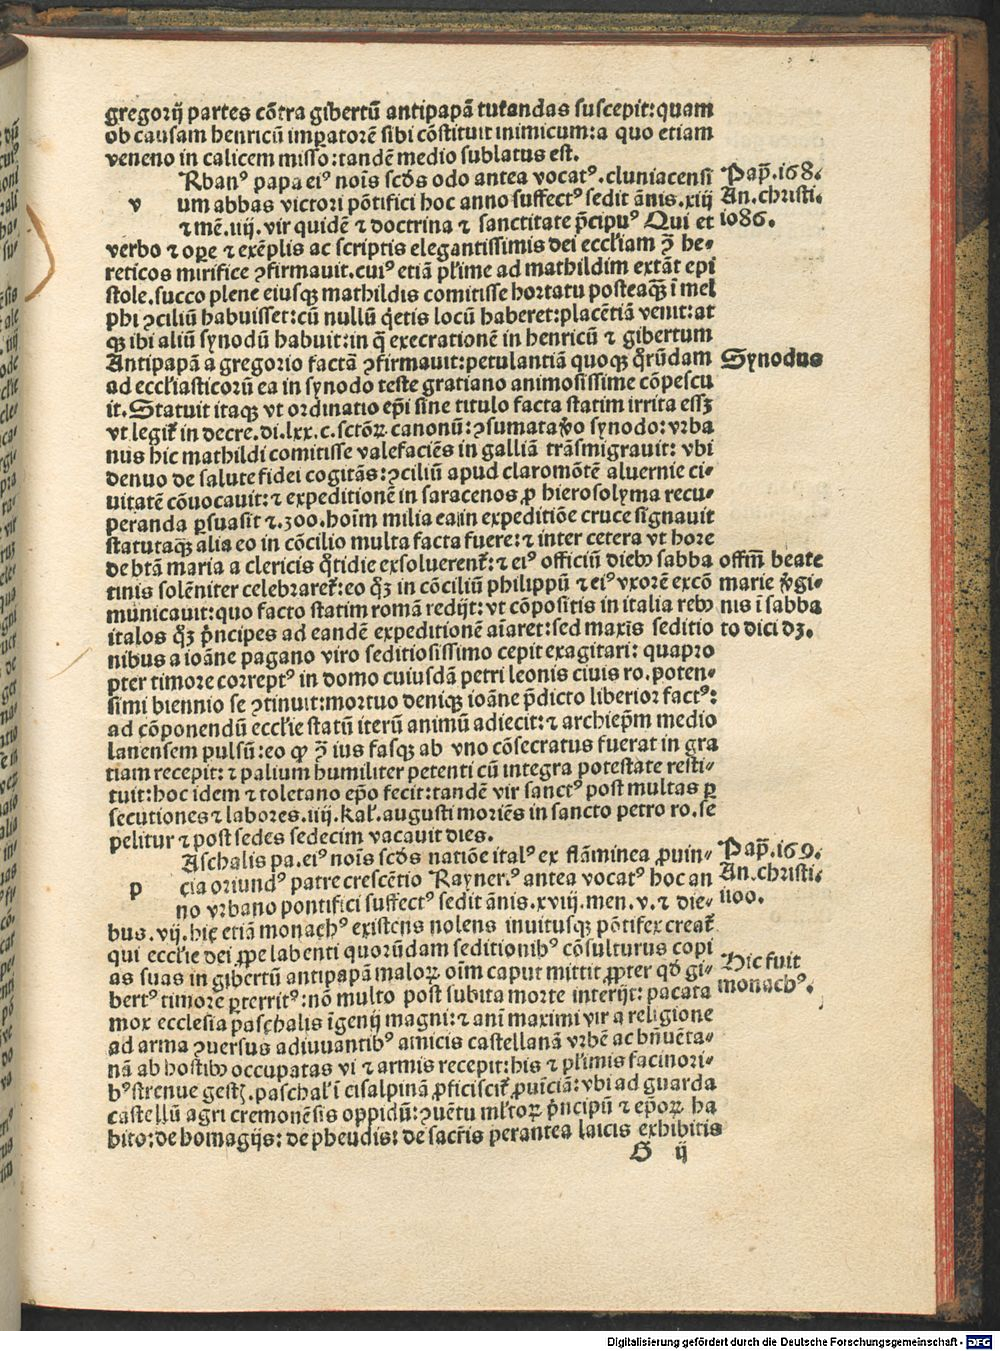 gregorij partes cōtra gibertū antipapā tutandas suscepit:quam
ob causam henricū imꝑatorē sibi cōstituit inimicum:a quo etiam
veneno in calicem misso:tandē medio sublatus est.
Rbanꝰ papa eiꝰ noīs scd̄s odo antea vocatꝰ.cluniacensi
v um abbas victori pōtifici hoc anno suffectꝰ sedit ānis.xiij
⁊ mē.iiij.vir quidē ⁊ doctrina ⁊ sanctitate p̄cipuꝰ Qui et
Pap̄.168.
An.christi.
1086.
verbo ⁊ oꝑe ⁊ exēplis ac scriptis elegantissimis dei eccl'iam ꝯ̄ he-
reticos mirifice ꝯfirmauit.cuiꝰ etiā pl'ime ad mathildim extāt epi
stole.succo plene eiusqꝫ mathildis comitisse hortatu posteaqꝫ̄ ī mel
phi ꝯciliū habuisset:cū nullū q̇etis locū haberet:placētiā venit:at
qꝫ ibi aliū synodū habuit:in q̄ execrationē in henricū ⁊ gibertum
Antipapā a gregorio factā ꝯfirmauit:petulantiā quoqꝫ q̄rūdam
Synodus
ad eccl'iasticorū ea in synodo teste gratiano animosissime cōpescu
it.Statuit itaqꝫ vt ordinatio ep̄i sine titulo facta statim irrita essꝫ
vt legit̄ in decre.di.lxx.c.sctōꝝ canonū:ꝯsumata v̊o synodo:vrba
nus hic mathildi comitisse valefaciēs in galliā trāsmigrauit: vbi
denuo de salute fidei cogitās:ꝯciliū apud claromōtē aluernie ci-
uitatē cōuocauit:⁊ expeditionē in saracenos ꝓ hierosolyma recu-
peranda ꝑsuasit ⁊.300.hoīm milia ea in expeditiōe cruce signauit
statutaqꝫ alia eo in cōcilio multa facta fuere:⁊ inter cetera vt hore
de btā maria a clericis q̇tidie exsoluerent̄:⁊ eiꝰ officiū diebꝰ sabba
tinis solēniter celebraret̄:eo qꝫ̊ in cōciliū philippū ⁊ eiꝰ vxorē excō
municauit:quo facto statim romā redijt:vt cōpositis in italia rebꝰ
italos qꝫ̊ ṗncipes ad eandē expeditionē aīaret:sed maxīs seditio
offm̄ beate
marie v̇gi-
nis ī sabba
to dici dꝫ.
nibus a ioāne pagano viro seditiosissimo cepit exagitari: quapro
pter timore correptꝰ in domo cuiusdā petri leonis ciuis ro.poten-
simi biennio se ꝯtinuit:mortuo deniqꝫ ioāne p̄dicto liberior factꝰ:
ad cōponendū eccl'ie statū iterū animū adiecit:⁊ archiep̄m medio
lanensem pulsū:eo ꝙ ꝯ̄ ius fasqꝫ ab vno cōsecratus fuerat in gra
tiam recepit:⁊ palium humiliter petenti cū integra potestate resti-
tuit:hoc idem ⁊ toletano ep̄o fecit:tandē vir sanctꝰ post multas ꝑ
secutiones ⁊ labores.iiij.kal'.augusti moriēs in sancto petro ro.se
pelitur ⁊ post sedes sedecim vacauit dies.
Aschalis pa.eiꝰ noīs scd̄s natiōe italꝰ ex flāminea ꝓuin-
p cia oriundꝰ patre crescētio Raynerꝰ antea vocatꝰ hoc an
no vrbano pontifici suffectꝰ sedit ānis.xviij.men.v.⁊ die-
Pap̄.169.
An.christi.
1100.
bus.vij.hic etiā monachꝰ existens nolens inuitusqꝫ pōtifex creat̄
qui eccl'ie dei ꝓpe labenti quorūdam seditionibꝰ cōsulturus copi
as suas in gibertū antipapā maloꝝ oīm caput mittit ꝓpter qd̊ gi-
bertꝰ timore ꝑterritꝰ:nō multo post subita morte interijt: pacata
Hic fuit
monachꝰ.
mox ecclesia paschalis īgenij magni:⁊ anī maximi vir a religione
ad arma ꝯuersus adiuuantibꝰ amicis castellanā vrbē ac bn̄uēta-
nā ab hostibꝰ occupatas vi ⁊ armis recepit:his ⁊ pl'imis facinori-
bꝰ strenue gestꝭ.paschal' ī cisalpinā ꝓficiscit̄ ꝓuīciā: vbi ad guarda
castellū agri cremonēsis oppidū:ꝯuētu ml'toꝝ ṗncipū ⁊ ep̄oꝝ ha
bito:de homagijs: de pheudis: de sacr̄is perantea laicis exhibitis
G ij
Digitalisierung gefördert durch die Deutsche Forschungsgemeinschaft - DFG